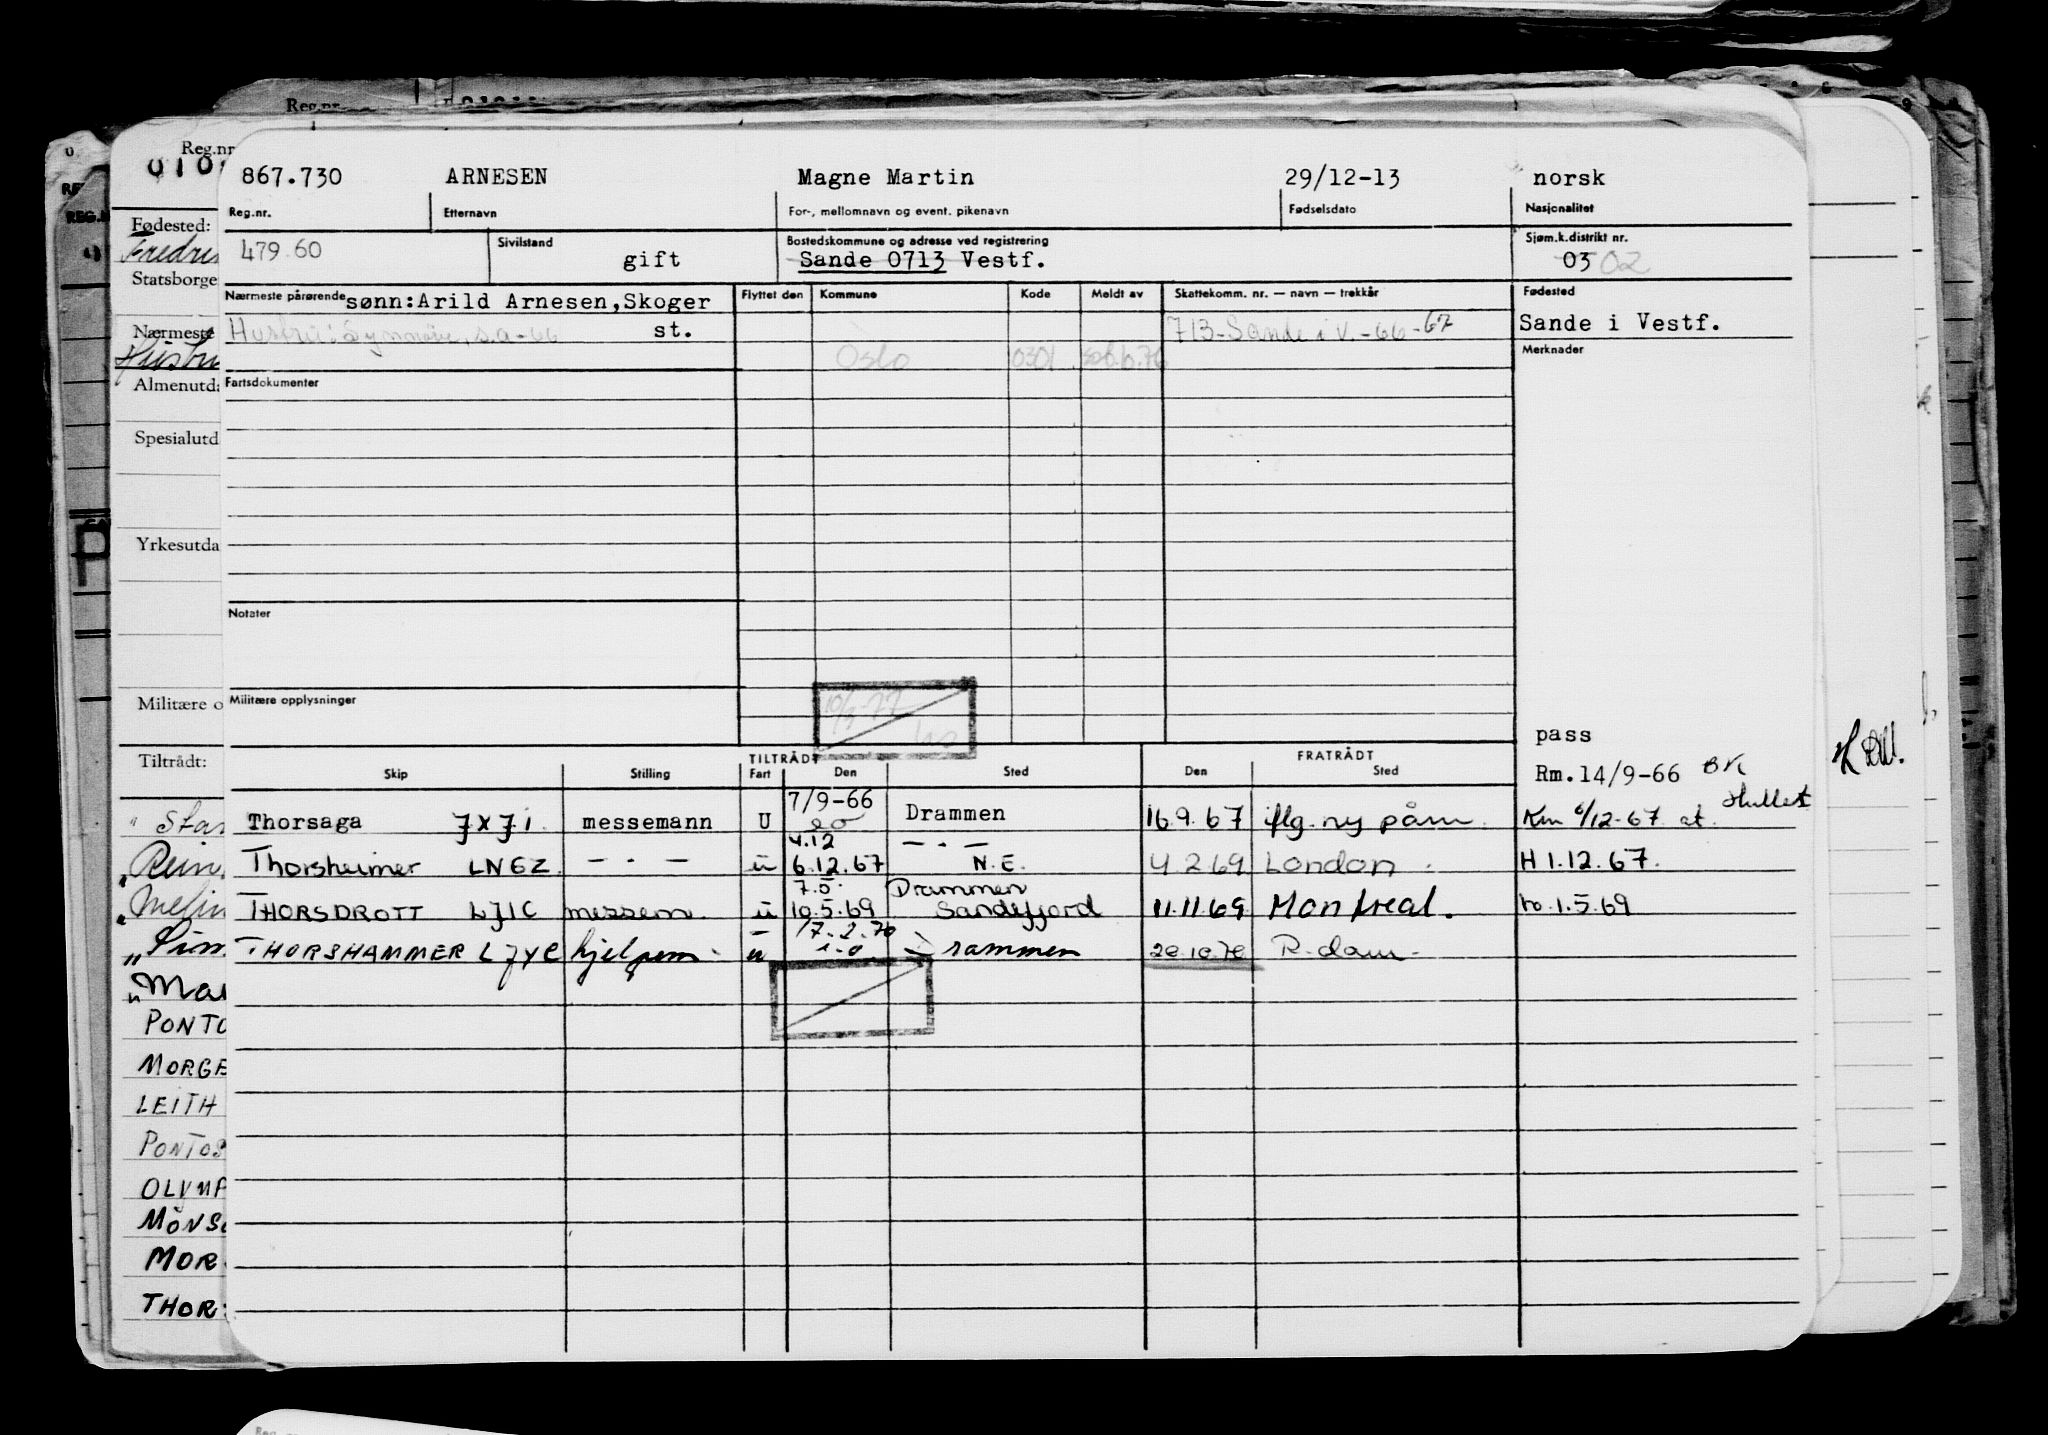 Reg.nr.
Reg.nr.
867.730 ARNESEN Magne Martin 29/12-13 norsk
Reg.nr. Etternavn For-, mellomnavn og event. pikenavn Fødselsdato Nasjonalitet
479.60 Sivilstand gift Bostedskommune og adresse ved registrering Sjøm.k.distrikt nr.
Sande 0713 Vestf. 03 02
Nærmeste pårørende sønn:Arild Arnesen,Skoger st. Flyttet den Kommune Kode Meldt av Skattekomm. nr. — navn — trekkår Fødested
Hustru: Synnøve, s.a-66 713-Sande i V.-66-67 Sande i Vestf.
Oslo 0301 Merknader
Fartsdokumenter
Notater
Militære opplysninger
10/3-77
pass
TILTRÅDT FRATRÅDT
Skip Stilling Fart Den Sted Den Sted Rm.14/9-66 BK
Thorsaga JXJI messemann U 7/9-66 Drammen 16.9.67 iflg. ny påm. Km 6/12-67 at. Hullest
Thorsheimer LNGZ — . — u 4.12 6.12.67 — . — N.E. 4.2.69 London H 1.12.67.
THORSDROTT LJIC messem. u 7.5. 10.5.69 Drammen Sandefjord 11.11.69 Montreal. 1.5.69
THORSHAMMER hjelpem. u 17.2.70 Drammen 20.10.70 R.dam.
Fødested:
Statsborge
Nærmeste
Hustru
Almenutd
Spesialutd
Yrkesutda
Militære o
Tiltrådt:
PONTO
MORGE
LEITH
PONTOS
OLYMP
MONS
MOR
THOR